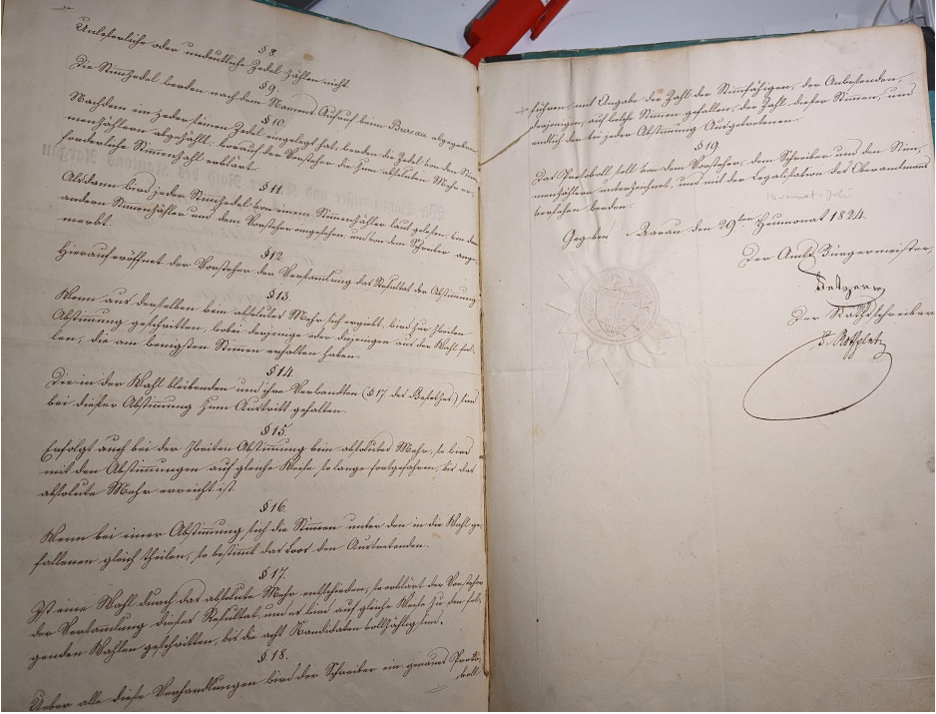 § 8.
Unleserliche oder undeutliche Zedel zählen nicht.
§ 9.
Die Stimmzedel werden nach dem Namens Aufruf beim Bureau abgegeben.
§ 10.
Nachdem ein jeder seinen Zedel eingelegt hat, werden die Zedel von den Stim-
menzählern abgezählt, worauf der Vorsteher die zum absoluten Mehr er-
forderliche Stimmenzahl erklärt.
§ 11.
Alsdann wird jeder Stimmzedel von einem Stimmenzähler laut gelesen, von dem
andern Stimmenzähler und dem Vorsteher eingesehen, und von dem Schreiber ange-
merkt.
§ 12.
Hierauf eröffnet der Vorsteher der Versammlung das Resultat der Abstimmung.
§ 13.
Wenn aus derselben kein absolutes Mehr sich ergiebt, wird zur zweiten
Abstimmung geschritten, wobei derjenige oder diejenigen aus der Wahl fal-
len, die am wenigsten Stimmen erhalten haben.
§ 14.
Die in der Wahl bleibenden und ihre Verwandten (§ 17 des Gesetzes) sind
bei dieser Abstimmung zum Austritt gehalten.
§ 15.
Erfolgt auch bei der zweiten Abstimmung kein absolutes Mehr, so wird
mit den Abstimmungen auf gleiche Weise so lange fortgefahren, bis das
absolute Mehr erreicht ist.
§ 16.
Wenn bei einer Abstimmung sich die Stimmen unter den in die Wahl ge-
fallenen gleich theilen, so bestimmt das Loos den Austretenden.
§ 17.
Ist eine Wahl durch das absolute Mehr entschieden, so erklärt der Vorsteher
der Versammlung dieses Resultat, und es wird auf gleiche Weise zu den fol-
genden Wahlen geschritten, bis die acht Kandidaten vollzählig sind.
§ 18.
Ueber alle diese Verhandlungen wird der Schreiber ein genaues Proto-
koll
führen, mit Angabe der Zahl der Stimmfähigen, der Anwesenden,
derjenigen, auf welche Stimmen gefallen, der Zahl dieser Stimmen, und
endlich der bei jeder Abstimmung Ausgetretenen.
§ 19
Das Protokoll soll von dem Vorsteher, dem Schreiber und den Stim-
menzählern unterzeichnet, und mit der Legalisation des Oberamtmanns
versehen werden.
Heumonat = Juli
Gegeben Aarau den 29ten Heumonat 1824.
Der Amts Bürgermeister,
Der Rathsschreiber
F. Rothpletz